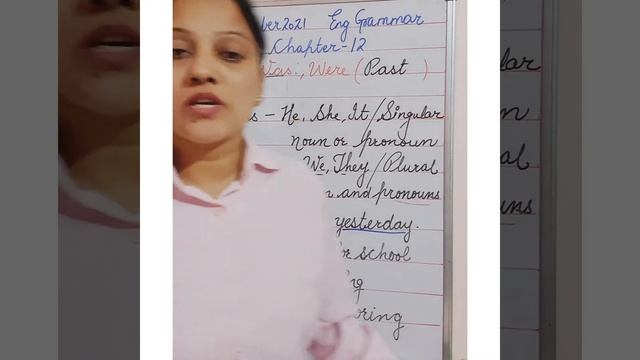 ber2021 Eng Grammar
Chapter-12
Was, Were (Past )
s - He, She, It/Singular
noun or pronoun
We, They/Plural
and pronouns
yesterday.
school
ing
oring